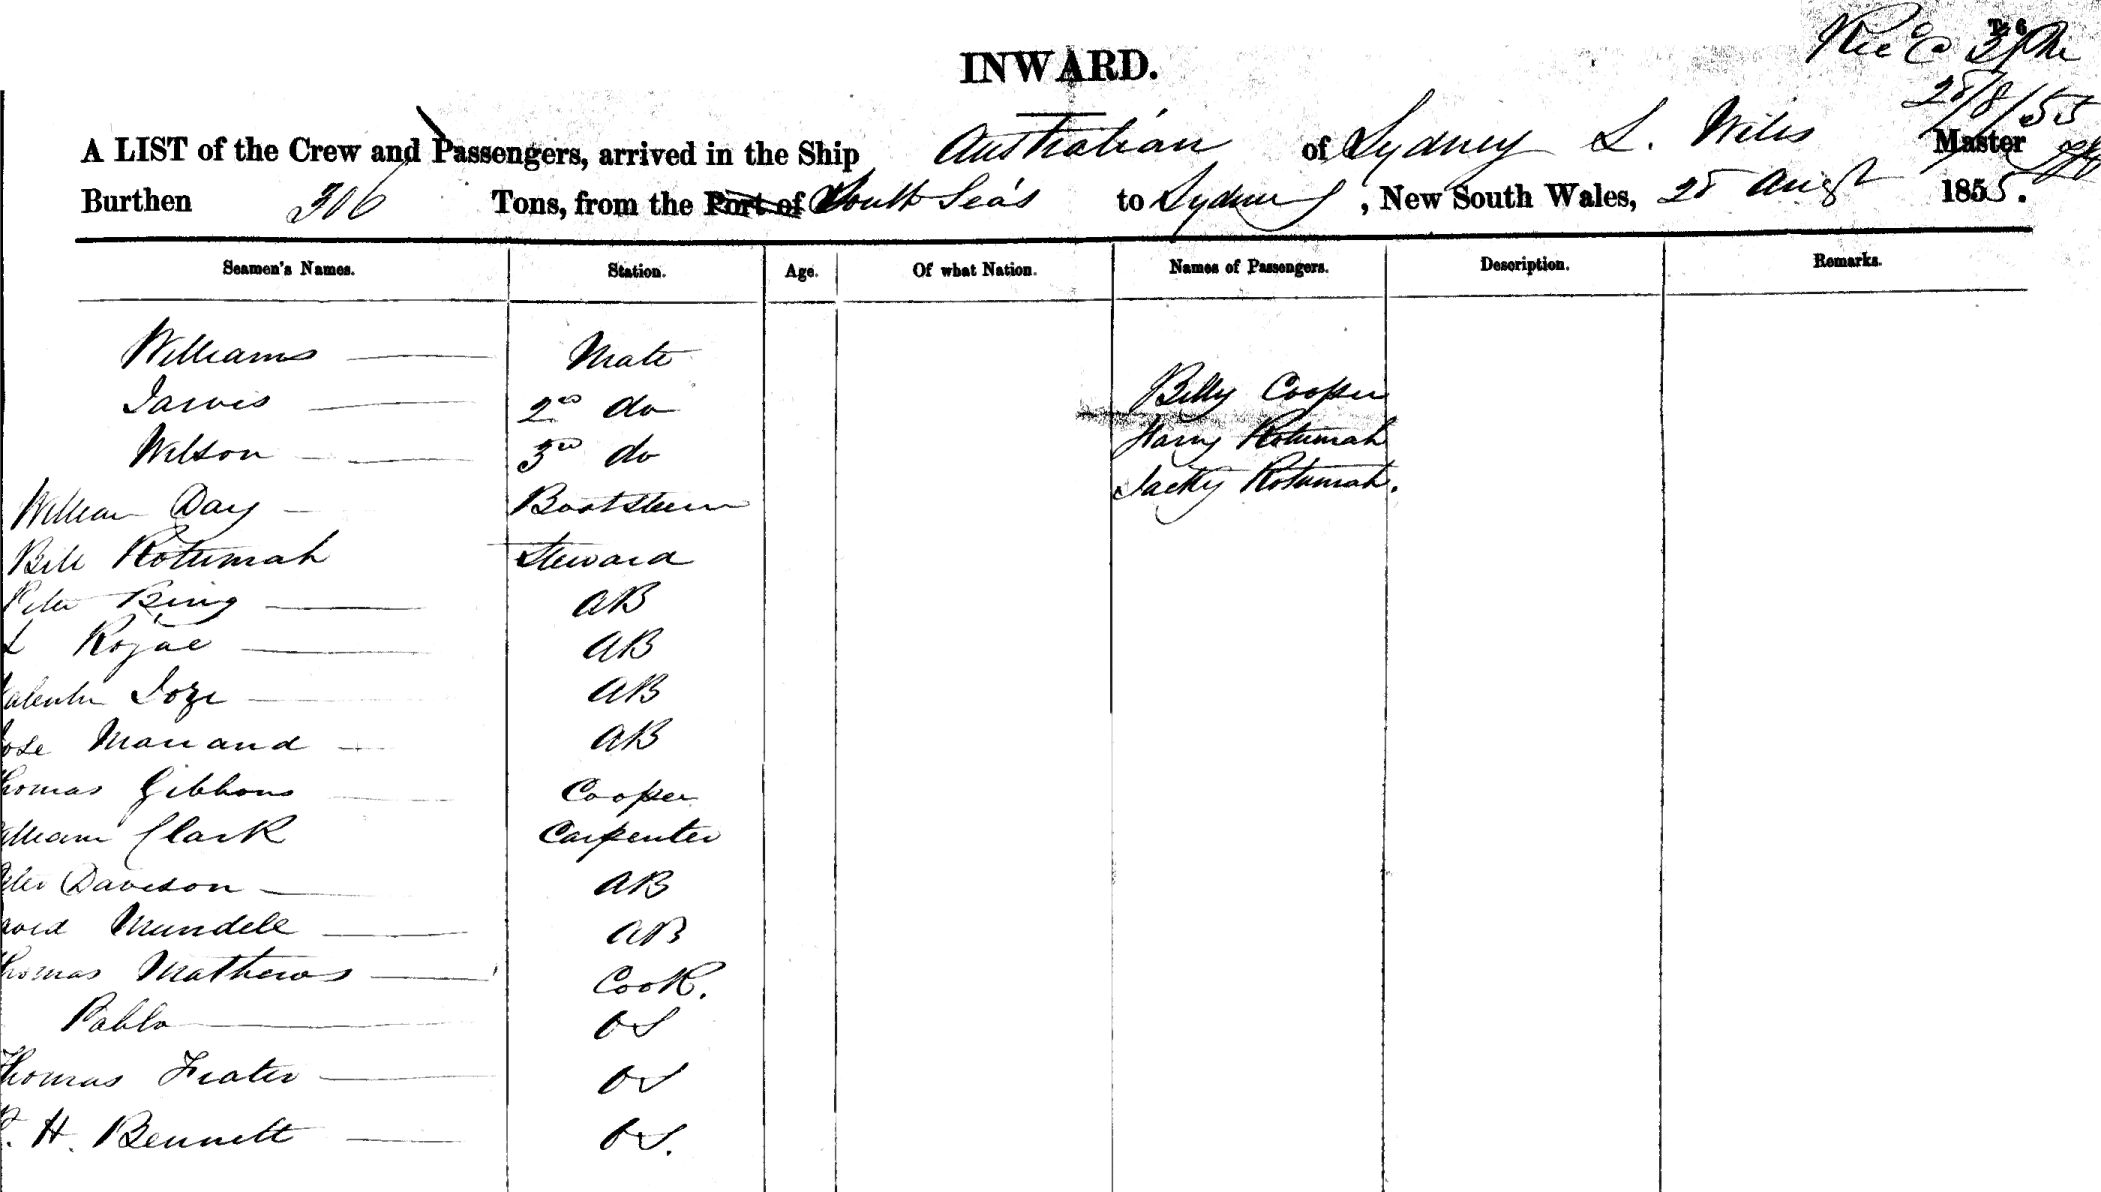 INWARD.
Rec'd 3 PM
28/8/55
A LIST of the Crew and Passengers, arrived in the Ship Australian of Sydney L. Wiles Master
Burthen 306 Tons, from the Port of South Sea's to Sydney, New South Wales, 28 Augst 1855.
Seamen's Names. Station. Age. Of what Nation. Names of Passengers. Description. Remarks.
Williams Mate
Billy Cooper
Jarvis 2nd do
Harry Rotumah
Wilson 3rd do
Jacky Rotumah.
William Day Boatsteerer
Bill Rotumah Steward
Peter Bing AB
Rojae AB
Joze AB
Jose AB
Thomas Gibbons Cooper
William Clark Carpenter
Peter Davison AB
David Mundell AB
Thomas Mathews Cook.
Pablo OS
Thomas Frater OS
H. Bennett OS.